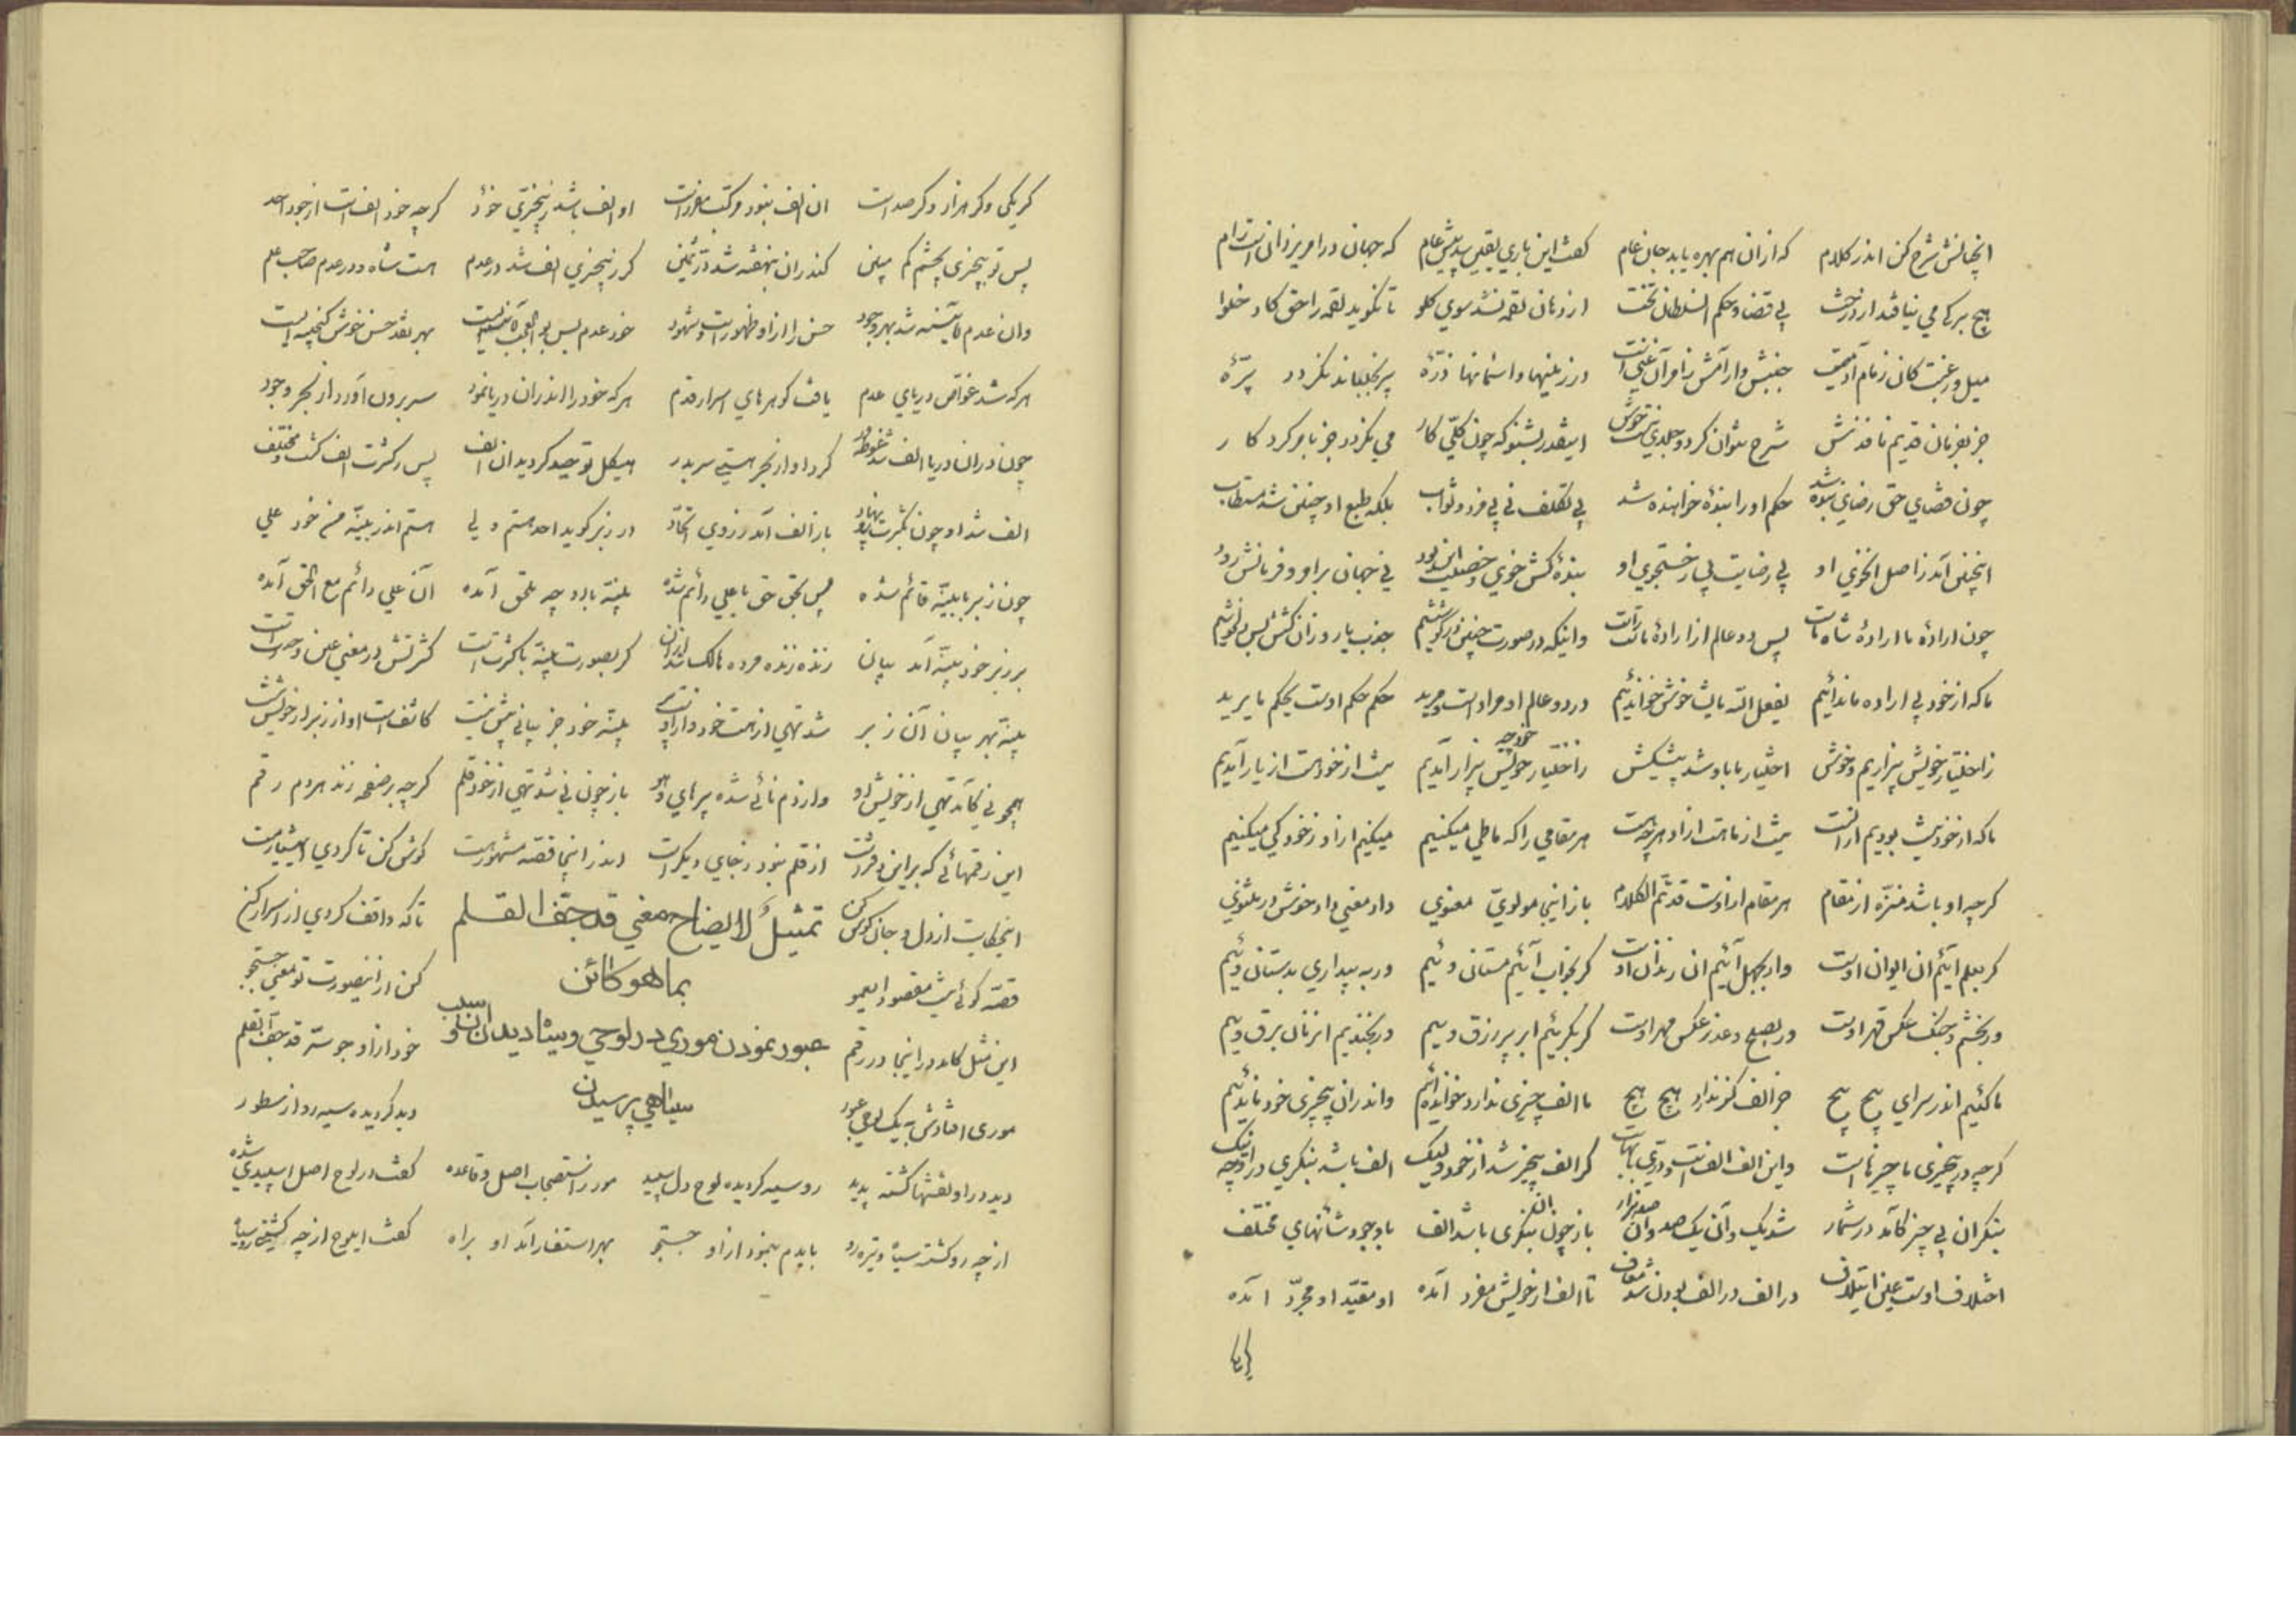 آنچنانش شرح کن اندر کلام که از ان هم بهره یابد جان عام گفت این باری یقین پیش عام که جهان در امر یزدانست رام
هیچ برکی می نیافتد از درخت بی قضا و حکم السلطان تخت از دهان لقمه نشد سوی کلو تا نکوید لقمه را حق کادخلوا
میل و رغبت کان زمام آدمیست جنبش و آرامش ز امر آن غنیست در زمینها و اسمانها ذرّه پر نجنباند نکردد پرّه
جز بفرمان قدیم نافذش شرح نتوان کرد و جلدی نیست خوش اینقدر بشنو که چون کلّی کار می نکردد جز بامر کردکار
چون قضای حق رضای بنده شد حکم او را بندهٔ خواهنده شد بی تکلف نی پی مزد و ثواب بلکه طبع او چنین شد مستطاب
اینچنین آمد ز اصل آنخوی او بی رضایت بی ز جستجوی او بندهٔ کش خوی و خصلت این بود نی جهان بر امر و فرمانش رود
چون ارادهٔ ما ارادهٔ شاه ماست پس دو عالم از ارادهٔ ماست راست وانیکه در صورت چنین در کوششیم جذب یار و زان کشش پس در خوشیم
ما که از خود بی اراده ماندائیم یفعل الله مایشا خوش خواندئیم در دو عالم او مراد است و مرید حکم حکم اوست یحکم ما یرید
ز اختیار خویش بیزاریم و خوش اختیار ما باو شد پیشکش ز اختیار خویش بیزار آمدیم نیست از خود هست از یار آمدیم
ما که از خود نیست بودیم از الست نیست از ما هست از او هرچه هست هر مقامی را که ما طی میکنیم میکنیم از او ز خود کی میکنیم
کرچه او باشد منزّه از مقام هر مقام از اوست قد تمّ الکلام باز اینجا مولویّ معنوی داد معنی داد خوش در مثنوی
کر بعلم آئیم آن ایوان اوست ور بجهل آئیم آن زندان اوست کر بخواب آئیم مستان وئیم ور به بیداری بدستان وئیم
ور بخشم و جنک عکس قهر اوست ور بصلح و عذر عکس مهر اوست کر بکرییم ابر پر رزق وییم ور بخندیم آنزمان برق وییم
ما کئیم اندر سرای پیچ پیچ جز الف کز ندارد هیچ هیچ ما الف چیزی ندارد خواندهایم واندران بیچیزی خود ماندئیم
کرچه در بیچیزی ما چیزهاست
بنکر ان بی چیز کآمد در شمار شد یک و آن یک صد و آن صد هزار باز چون ان بنکری باشد الف با وجود شأنهای مختلف
اختلاف اوست عین ایتلاف تا الف از خویش مفرد آمده او مقیّد او مجرّد آمده
کر یکی و کر هزار و کر صد است ان الف نبود مرکب مفرداست او الف باشد ز بیچیزی خود کرچه خود الف است از جود احد
پس تو بیچیزی بچشم کم مبین کندران بنهفته شد درّ ثمین کر ز بیچیزی الف شد در عدم هست شاه و در عدم صاحب علم
وان عدم کآئینه شد بهر وجود حسن را از او ظهور است و شهود خود عدم بس بوالعجب آئینه ایست بهر نقد حسن خوش کنجینه ایست
هر که شد غوّاص دریای عدم یافت کوهرهای اسرار قدم هر که خود را اندران دریا نمود سر برون آورد از بحر وجود
چون دران دریا الف شد غوطه ور کرد او از بحر هستی سر بدر هیکل توحید کردید ان الف پس ز کثرت الف کشت و مختلف
الف شد او چون بکثرت پا نهاد باز الف آمد ز روی اتّحاد در زبر کوید احد هستم ولی هستم اندر بیّنه من خود علی
چون زبر با بیّنه قائم شده پس بحق حق با علی دائم شده بیّنه با رو چه ملحق آمده آن علی دائم مع الحق آمده
بر زبر خود بیّنه آمد بیان کر بصورت بیّنه با کثرتست کثرتش در معنی عین وحدتست
بیّنه بهر بیان آن زبر بیّنه خود جز بیانی بیش نیست کاشف است او از زبر از خویش نیست
همچو نی کآمد تهی از خویش او باز چون نی شد تهی از خود قلم کرچه بر صفحه زند هردم رقم
این رقمهائی که بر این دفتر است از قلم نبود ز جای دیکر است اندر اینجا قصّه مشهور هست کوش کن تا کردی
اینحکایت از دل و جان کوش کن تا که واقف کردی از اسرار کن
تمثیلٌ لایضاح معنی قد جفّ القلم
بما هو کائن
قصّه کوئی نیست مقصود ایعمو کن از اینصورت تو معنی جستجو
عبور نمودن موری در لوحی و سیاه دیدن آن لوح و سبب
سیاهی پرسیدن
این مثل کآمد در اینجا در رقم خود از او جو سرّ قد جفّ القلم
موری افتادش بیک لوحی عبور دید کردیده سیه رو از سطور
دید در او نقشها کشته پدید رو سیه کردیده لوح دل سپید مور ز استصحاب اصل و قاعده کفت در لوح اصل اسپیدی شده
از چه رو کشته سیاه و تیره رو بایدم بنمود از او جستجو بهر استفسار آمد او براه کفت ایلوح از چه کشتی رو سیاه